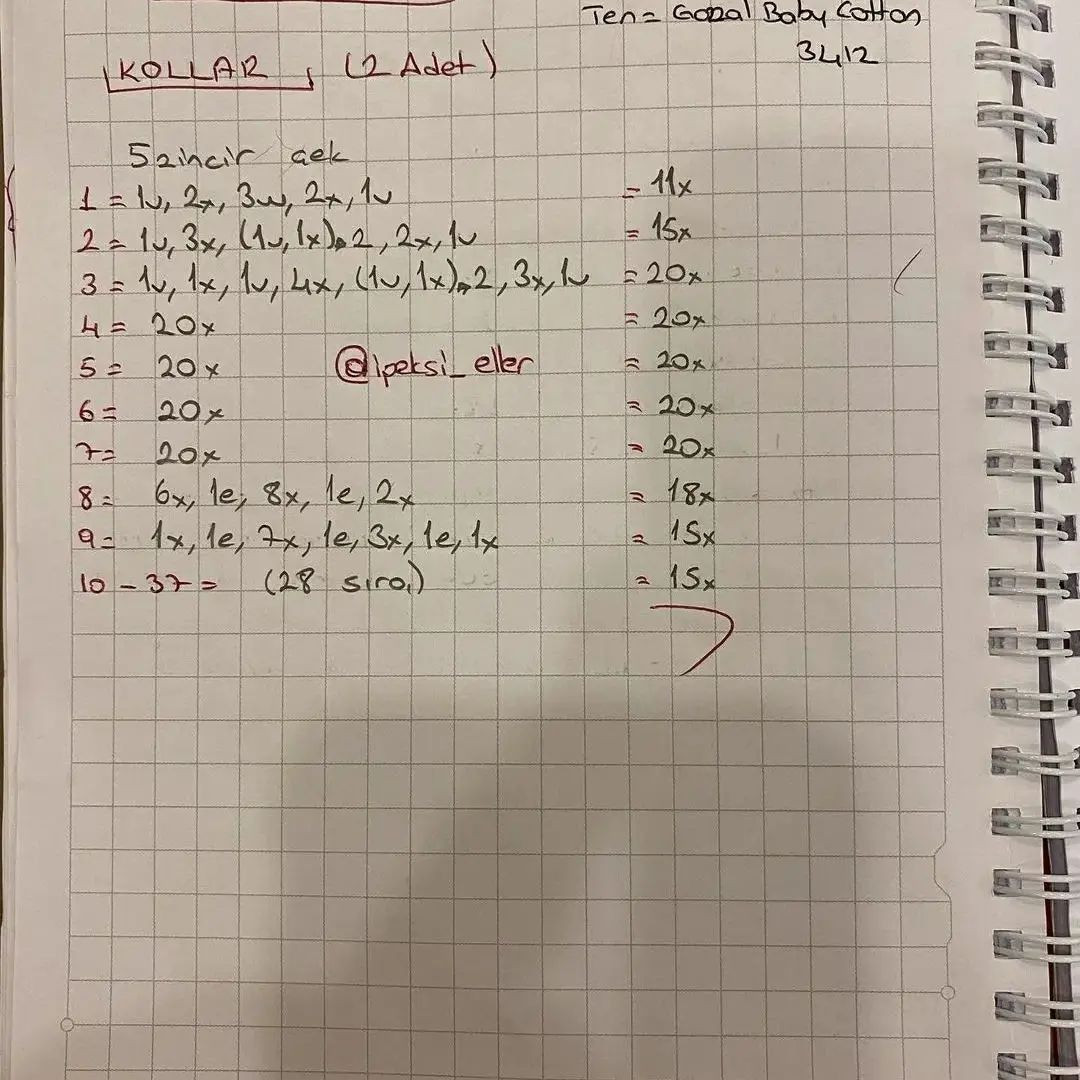 Ten = Gazal Baby Cotton
3412
KOLLAR (2 Adet)
5 zincir çek
1 = 1v, 2x, 3w, 2x, 1v = 11x
2 = 1v, 3x, (1v, 1x)*2, 2x, 1v = 15x
3 = 1v, 1x, 1v, 4x, (1v, 1x)*2, 3x, 1v = 20x
4 = 20x = 20x
5 = 20x = 20x
@ipeksi_eller
6 = 20x = 20x
7 = 20x = 20x
8 = 6x, 1e, 8x, 1e, 2x = 18x
9 = 1x, 1e, 7x, 1e, 3x, 1e, 1x = 15x
10 - 37 = (28 sıra) = 15x